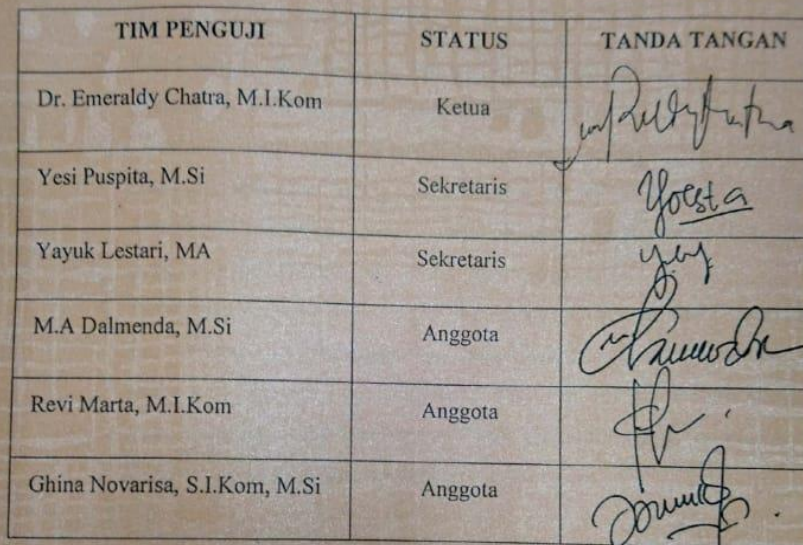 TIM PENGUJI STATUS TANDA TANGAN
Dr. Emeraldy Chatra, M.I.Kom Ketua
Yesi Puspita, M.Si Sekretaris
Yayuk Lestari, MA Sekretaris
M.A Dalmenda, M.Si Anggota
Revi Marta, M.I.Kom Anggota
Ghina Novarisa, S.I.Kom, M.Si Anggota